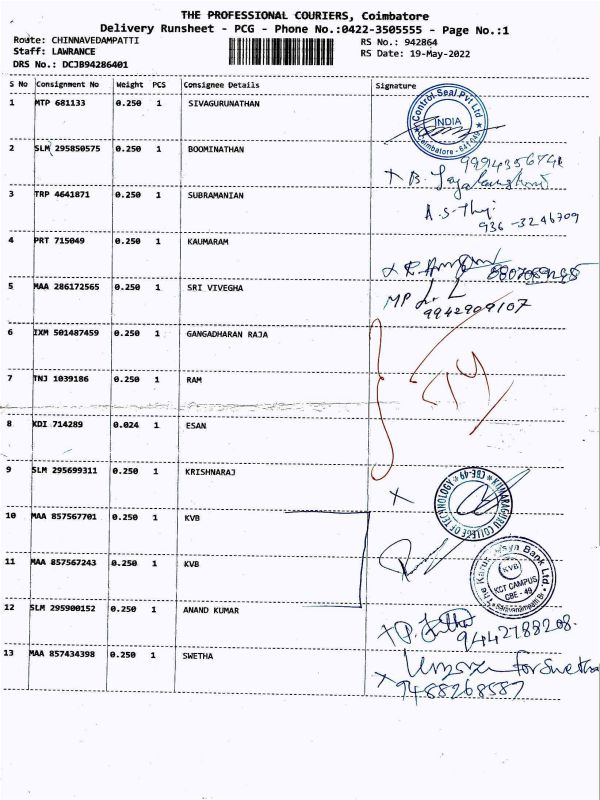 THE PROFESSIONAL COURIERS, Coimbatore
Delivery Runsheet - PCG - Phone No.:0422-3505555 - Page No.:1
Route: CHINNAVEDAMPATTI
RS No.: 942864
Staff: LAWRANCE
RS Date: 19-May-2022
DRS No.: DCJB94286401
S No Consignment No Weight PCS Consignee Details Signature
1 MTP 681133 0.250 1 SIVAGURUNATHAN
Control Seal Pvt Ltd
INDIA
Coimbatore
2 SLM 295850575 0.250 1 BOOMINATHAN
B.
3 TRP 4641871 0.250 1 SUBRAMANIAN
A.S.
936-3246709
4 PRT 715049 0.250 1 KAUMARAM
5 MAA 286172565 0.250 1 SRI VIVEGHA
MP
9942909107
6 IXM 501487459 0.250 1 GANGADHARAN RAJA
7 TNJ 1039186 0.250 1 RAM
8 KDI 714289 0.024 1 ESAN
9 SLM 295699311 0.250 1 KRISHNARAJ
KUMARAGURU COLLEGE OF TECHNOLOGY CBE-49
10 MAA 857567701 0.250 1 KVB
11 MAA 857567243 0.250 1 KVB
The Karur Vysya Bank Ltd.
KVB
KCT CAMPUS
CBE - 49
Saravanampatti
12 SLM 295900152 0.250 1 ANAND KUMAR
9442188208.
13 MAA 857434398 0.250 1 SWETHA
for Swetha
9488268587